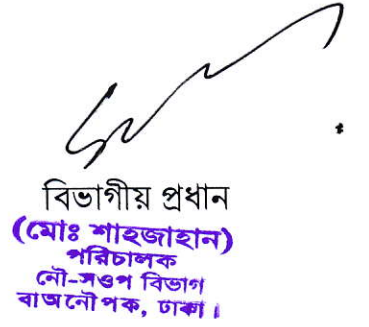 বিভাগীয় প্রধান
(মোঃ শাহজাহান)
পরিচালক
নৌ-সওপ বিভাগ
বাঅনৌপক, ঢাকা।